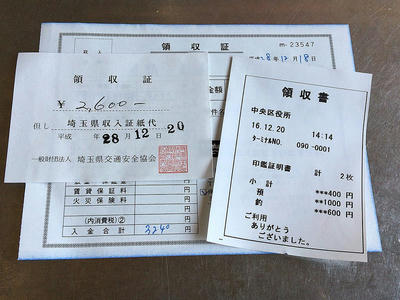 領収証
m-23547
8年12月18日
金額
件名
賃貸保証料 円
火災保険料 円
(内消費税)② 円
入金合計 3240 円
領収証
¥2,600-
但し 埼玉県収入証紙代
平成 年 28 12 20
一般財団法人 埼玉県交通安全協会
領収書
中央区役所
16.12.20 14:14
ターミナルNO. 090-0001
印鑑証明書 計 2枚
小計 ***400円
預 **1000円
釣 ***600円
ご利用
ありがとう
ございました。